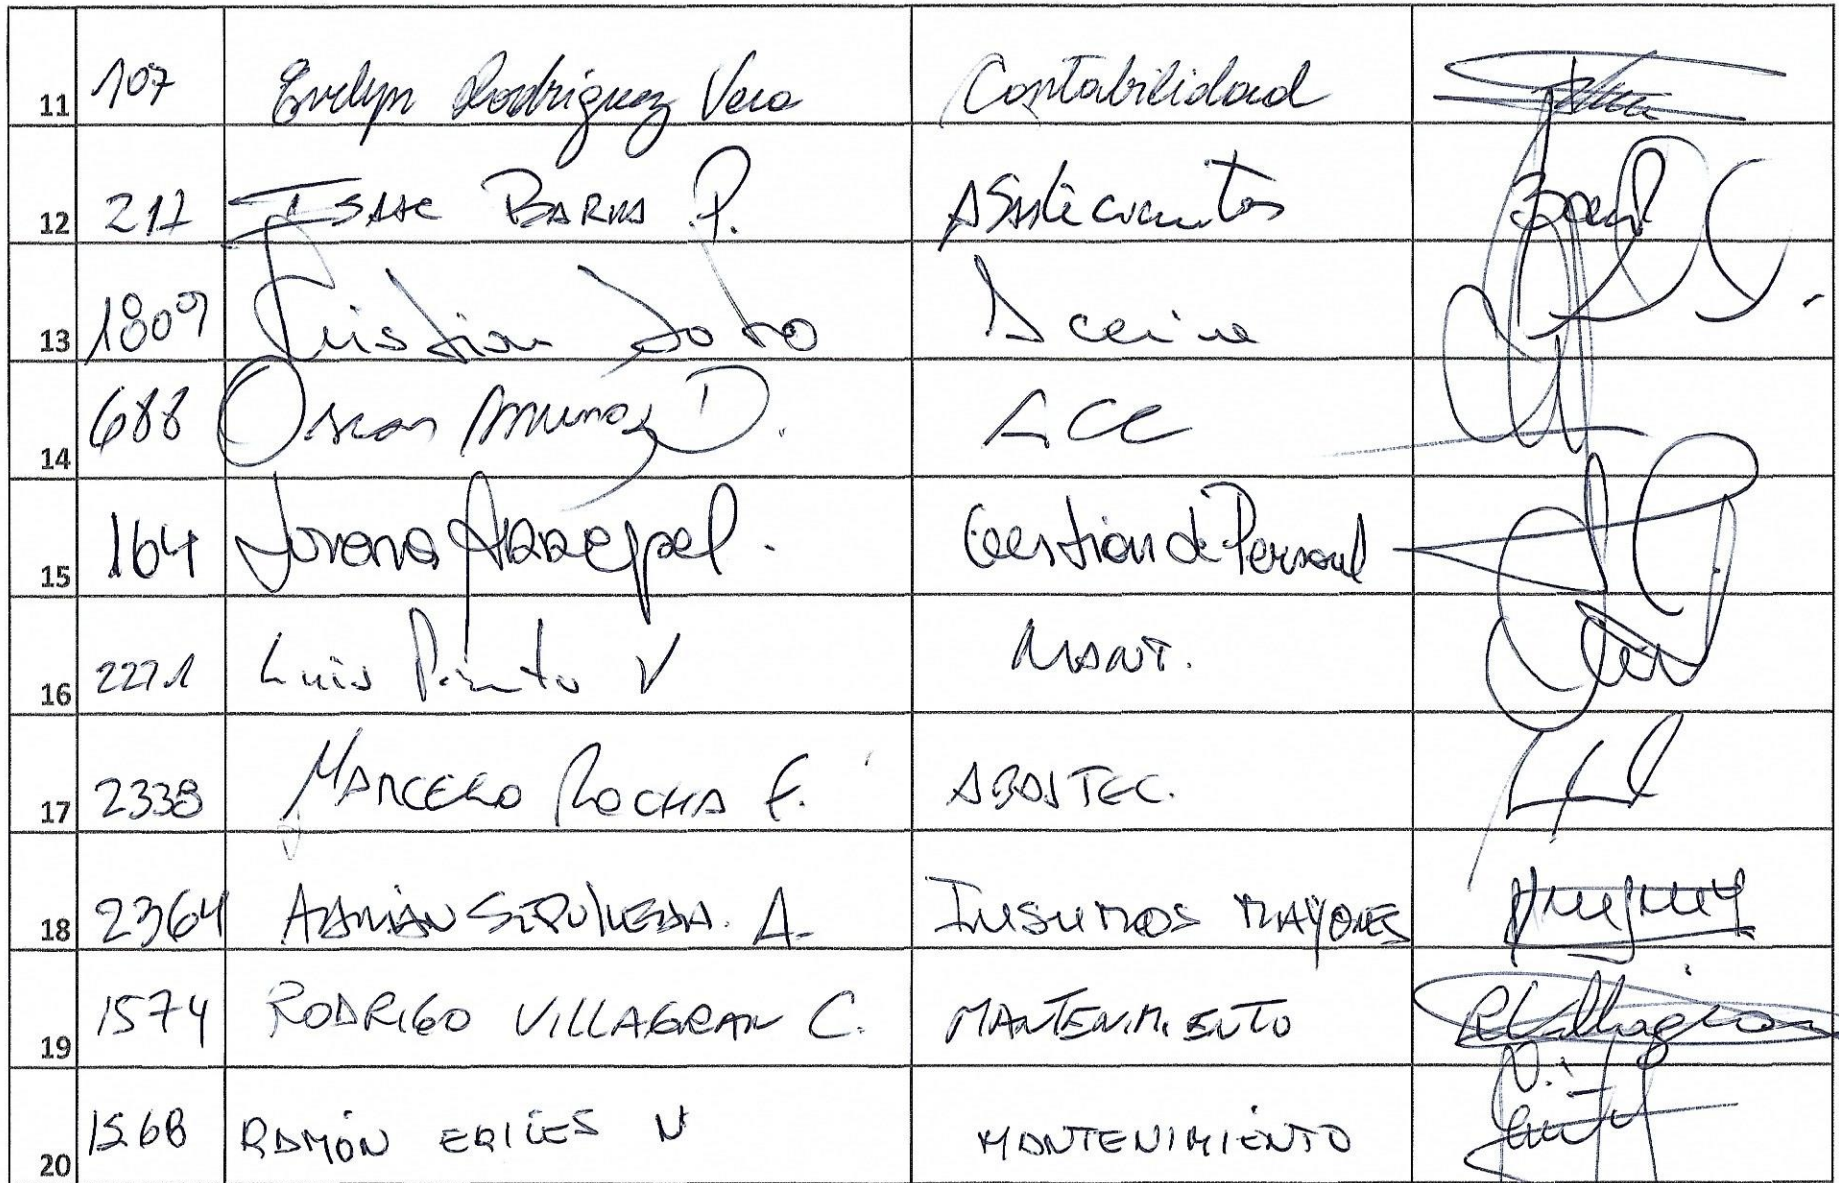 11 107 Evelyn Rodriguez Vera Contabilidad
12 217 ISAAC BARRA P.
13 1809 Cristian Soto Acería
14 688 Oscar Munoz D.
15 164 Lorena Gestion de Personal
16 2271 Luis Pinto V MANT.
17 2338 MARCELO ROCHA F. ABASTEC.
18 2364 ADRIÁN SEPULVEDA. A. INSUMOS MAYORES
19 1574 RODRIGO VILLAGRAN C. MANTENIMIENTO
20 1568 RAMÓN ERICES N MANTENIMIENTO